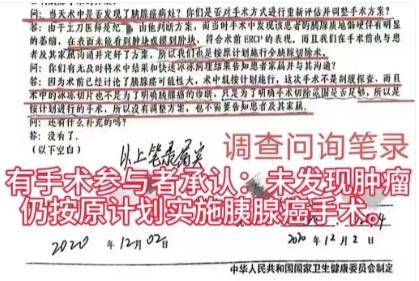 问：当天术中是否发现了胰腺癌病灶？你们是否对手术方式进行重新评估并调整手术方案？
答：由于主刀医师是纪
由他判断方案，而当时手术中发现该患者的胰腺质地偏硬伴有明显
的萎缩，在表面未能看到肿块或摸到肿块，符合术前ERCP的表现，而且我们在手术前也与患
者及其家属沟通并定好了方案，所以我们也是按原计划施行全胰腺切除术。
问：你们有无及时将术中结果和快速冰冻病理结果告知患者家属并与其沟通？
答：因为术前已经讨论了胰腺癌可能性大，术中就按计划施行，这次手术不是剖腹探查，而且
术中的冰冻切片也不是为了明确胰腺癌的诊断，只是为了明确手术切除范围是否足够，所以是
按计划进行的手术，所以没有调整方案，也不需要告知患者及其家属。
问：还有什么补充的吗？
答：没有了。
（以下空白）
以上笔录属实
调查问询笔录
有手术参与者承认：未发现肿瘤
仍按原计划实施胰腺癌手术。
2020 年 12月02日
2020 年 12月2日
中华人民共和国国家卫生健康委员会制定